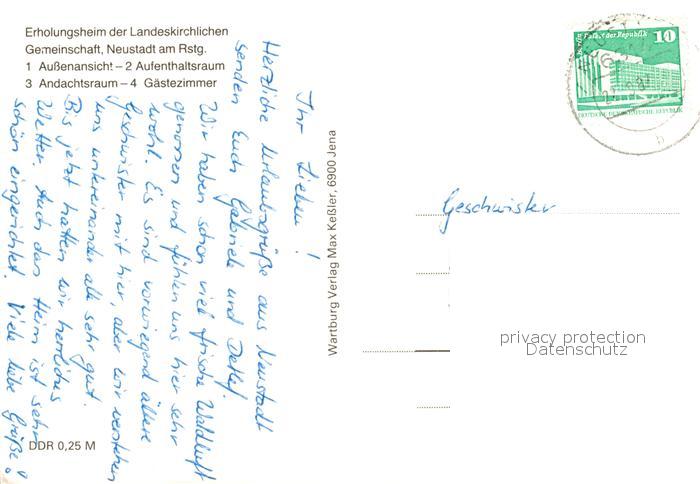 Erholungsheim der Landeskirchlichen
Gemeinschaft, Neustadt am Rstg.
1 Außenansicht – 2 Aufenthaltsraum
3 Andachtsraum – 4 Gästezimmer
Ihr Lieben!
Herzliche Urlaubsgrüße aus Neustadt
senden Euch Gabriele und Detlef.
Wir haben schon viel frische Waldluft
genossen und fühlen uns hier sehr
wohl. Es sind vorwiegend ältere
Geschwister mit hier, aber wir verstehen
uns untereinander alle sehr gut.
Bis jetzt hatten wir herrliches
Wetter. Auch das Heim ist sehr
schön eingerichtet. Viele liebe Grüße!
DDR 0,25 M
Wartburg Verlag Max Keßler, 6900 Jena
Berlin, Palast der Republik
10
DEUTSCHE DEMOKRATISCHE REPUBLIK
b
Geschwister
privacy protection
Datenschutz